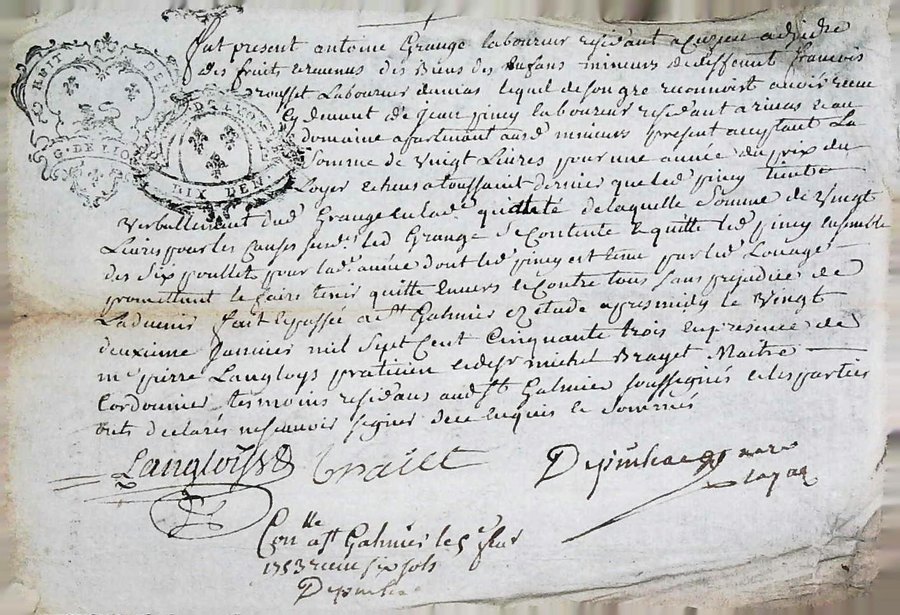 HUIT DEN
G. DE LION
G. DE LION
DIX DEN
fut present antoine Grange laboureur residant a Cuzieu adjudre
des fruits et revenus des Biens des Enfans mineurs de deffeunt francois
rousset Laboureur lequel de son gre reconnoit avoir receu
de jean piney laboureur residant a rivas et au
domaine apartenant ausd. mineurs present acceptant La
Somme de Vingt Livres pour une année du prix du
Loyer echeus a toussaint dernier que led. piney tient
Verballement dud. Grange en lad. quallité de laquelle Somme de Vingt
Livres pour les Causes susd. led. Grange Se Contente et quitte led. piney ensemble
des Six poullet pour lad. année dont led. piney est tenu par led. Louage
promettant le faire tenir quitte envers et Contre tous Sans prejudice de
Ladvenir fait et passée a St. Galmier ez etude apres midy le Vingt
deuxieme Janvier mil Sept Cent Cinquante trois en presence de
me. pierre Langloys praticien et de sr. michel Braget Maitre
Cordonnier temoins residans aud. St. Galmier soussignés et les parties
ont declarés ne scavoir signer de ce enquis et Sommés
Langlois
Con.lle a St. Galmier le 5e. fevr
1753 receu six sols